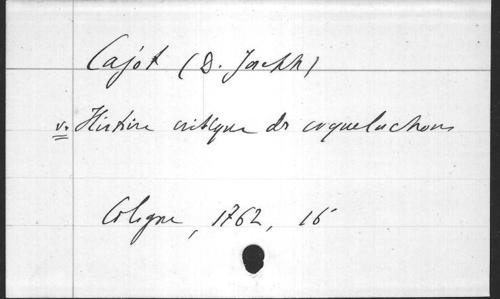 Cajot (D. Joseph)
v. Histoire critique des coqueluchons
Cologne, 1762, 16°